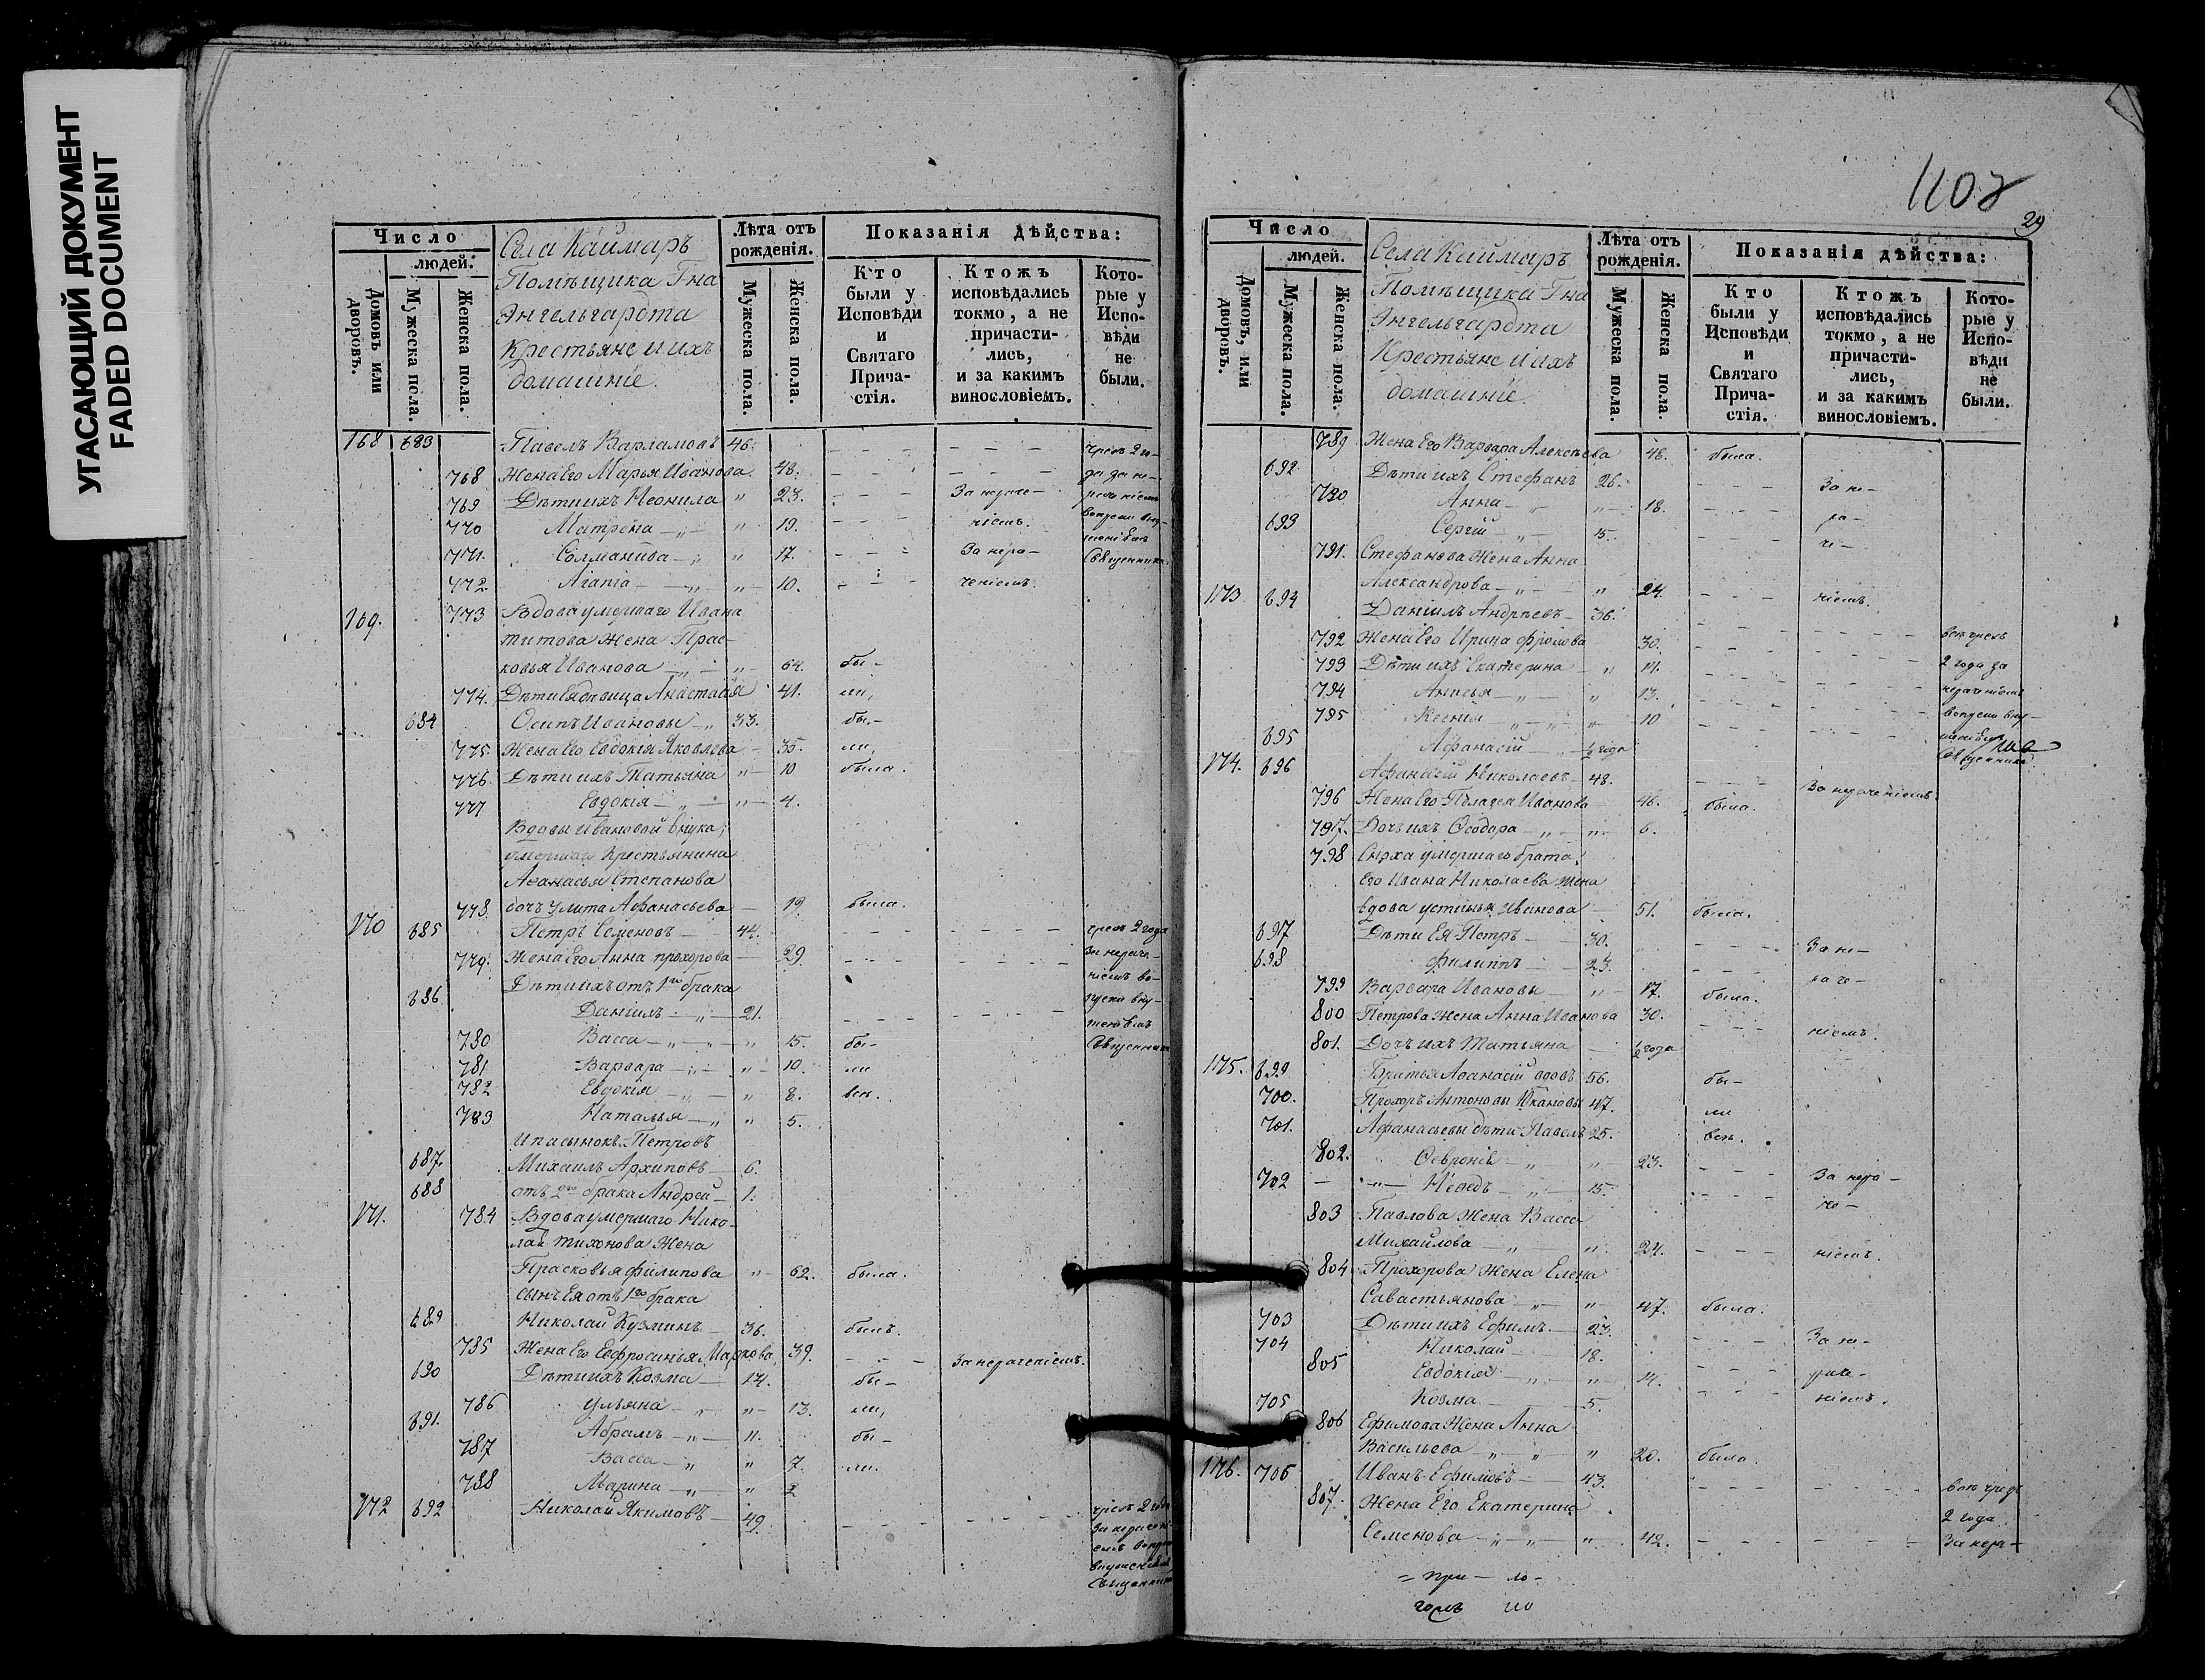 УГАСАЮЩИЙ ДОКУМЕНТ
FADED DOCUMENT
Число
людей.
Домовъ или дворовъ.
Мужеска пола.
Женска пола.
Села Каймаръ
Помѣщика Гна
Энгельгардта
Крестьяне и ихъ
домашніе.
Лѣта отъ рожденія.
Мужеска пола.
Женска пола.
Показанія дѣйства:
Кто были у Исповѣди и Святаго Прича-стія.
Ктожъ исповѣдались токмо, а не причасти-лись, и за какимъ винословіемъ.
Кото-рые у Испо-вѣди не были.
168 683 Павелъ Варламовъ 46. чрезъ 2 го-
768 Жена Его Марья Иванова 48. да за не-
769 Дѣти ихъ Неонила " 23. За нераче-
770 Матрона " 19. ніемъ.
771. Соломанида " 17. За нера- Священника
772. Агапіа " 10. ченіемъ.
169. 773 Вдова умершаго Ивана
Титова Жена Прас-
ковья Иванова " 64. бы-
774. Дѣти Ея дѣвица Анастасія 41. ли,
684 Осипъ Ивановы 33. бы-
775. Жена Его Евдокія Яковлева 35. ли,
776. Дѣти ихъ Татьяна " 10 была.
777 Евдокія " 4.
Вдовы Ивановой внука,
умершаго Крестьянина
Аѳанасья Степанова
778. дочь Улита Афанасьева 19. была.
170 685 Петръ Семеновъ 44. чрезъ 2 года
779. Жена Его Анна Прохорова 29 за нераче-
Дѣти ихъ отъ 1го брака ніемъ во-
686 Даніилъ " 21.
780 Васса " 15. бы- Священника
781 Варвара " 10. ли
782 Евдокія " 8. всѣ.
783 Наталья " 5.
И пасынокъ Петровъ
687. Михаилъ Архиповъ 6.
688 отъ 2го брака Андрей 1.
171. 784 Вдова умершаго Нико-
лая Тихонова Жена
Прасковья Филипова " 62. была.
сынъ Ея отъ 1го брака
689 Николай Кузминъ 36. былъ.
785 Жена Его Евфросинья Маркова 39. За нераченіемъ.
690 Дѣти ихъ Козма 14. бы-
786 Ульяна " 13. ли,
691. Абрамъ " 11. бы-
787 Васса " 7. ли.
788 Марина " 2
172 692 Николай Якимовъ 49. чрезъ 2 года
за нерачені-
емъ
Священника
1108
29
Число
людей.
Домовъ, или дворовъ.
Мужеска пола.
Женска пола.
Села Каймаръ
Помѣщика Гна
Энгельгардта
Крестьяне и ихъ
домашніе.
Лѣта отъ рожденія.
Мужеска пола.
Женска пола.
Показанія дѣйства:
Кто были у Исповѣди и Святаго Прича-стія.
Ктожъ исповѣдались токмо, а не причасти-лись, и за какимъ винословіемъ.
Кото-рые у Испо-вѣди не были.
789 Жена Его Варвара Алексѣева 48. была.
692 Дѣти ихъ Стефанъ 26. За не-
790 Анна " 18. ра-
693 Сергій " 15. че-
791. Стефанова Жена Анна
Александрова " 24. ніемъ.
173 694 Даніилъ Андреевъ 36.
792 Жена Его Ирина Фролова 30. всѣ чрезъ
793 Дѣти ихъ Екатерина " 14. 2 года за
794 Анисья " 13. нераченіемъ
795 Ксенія " 10
695 Афанасій ½ года
174. 696 Афанасій Николаевъ 48. За нераченіемъ. Священника
796 Жена Его Пелагея Иванова 46. была.
797. Дочь ихъ Ѳеодора " 6.
798 Сноха умершаго брата
Его Ивана Николаева жена
вдова Устинья Иванова 51. была.
697 Дѣти Ея Петръ 30. За не-
698 Филиппъ 23. раче-
799 Варвара Ивановы " 17. была.
800 Петрова жена Анна Иванова 30. ніемъ.
801. Дочь ихъ Татьяна ½ года
175. 699 Братья Аѳанасій вдовъ 56. бы-
700. Прохоръ Антоновы 47. ли
701. Афанасьевы дѣти Павелъ 25. всѣ.
802. Ѳевронія " 23. За нера-
702 Неѳедъ " 15. че-
803 Павлова Жена Васса
Михайлова " 24. ніемъ.
804 Прохорова Жена Елена
Савастьянова " 47. была.
703 Дѣти ихъ Ефимъ 23. За не-
704 Николай 18.
805 Евдокія " 14.
705 Козма 5. ніемъ.
806 Ефимова Жена Анна
Васильева " 20. была.
176. 706 Иванъ Ефимовъ 43. всѣ чрезъ
807. Жена Его Екатерина 2 года
Семенова " 42. За нера-